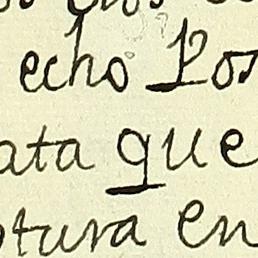 echo Pos
ata que
tura en